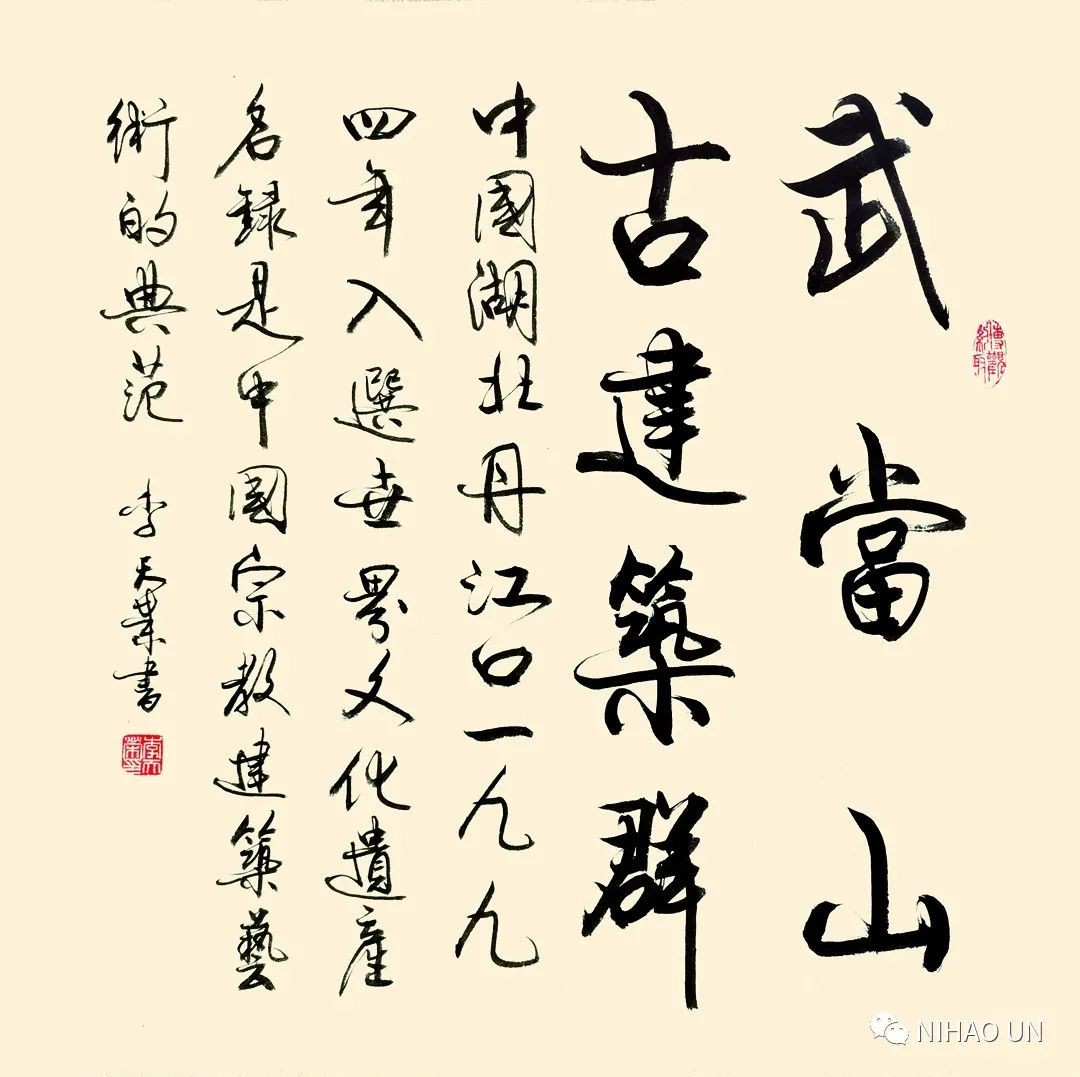 武當山
古建築群
中國湖北丹江口一九九
四年入選世界文化遺產
名錄是中國宗教建築藝
術的典范
李天業書
博觀約取
NIHAO UN